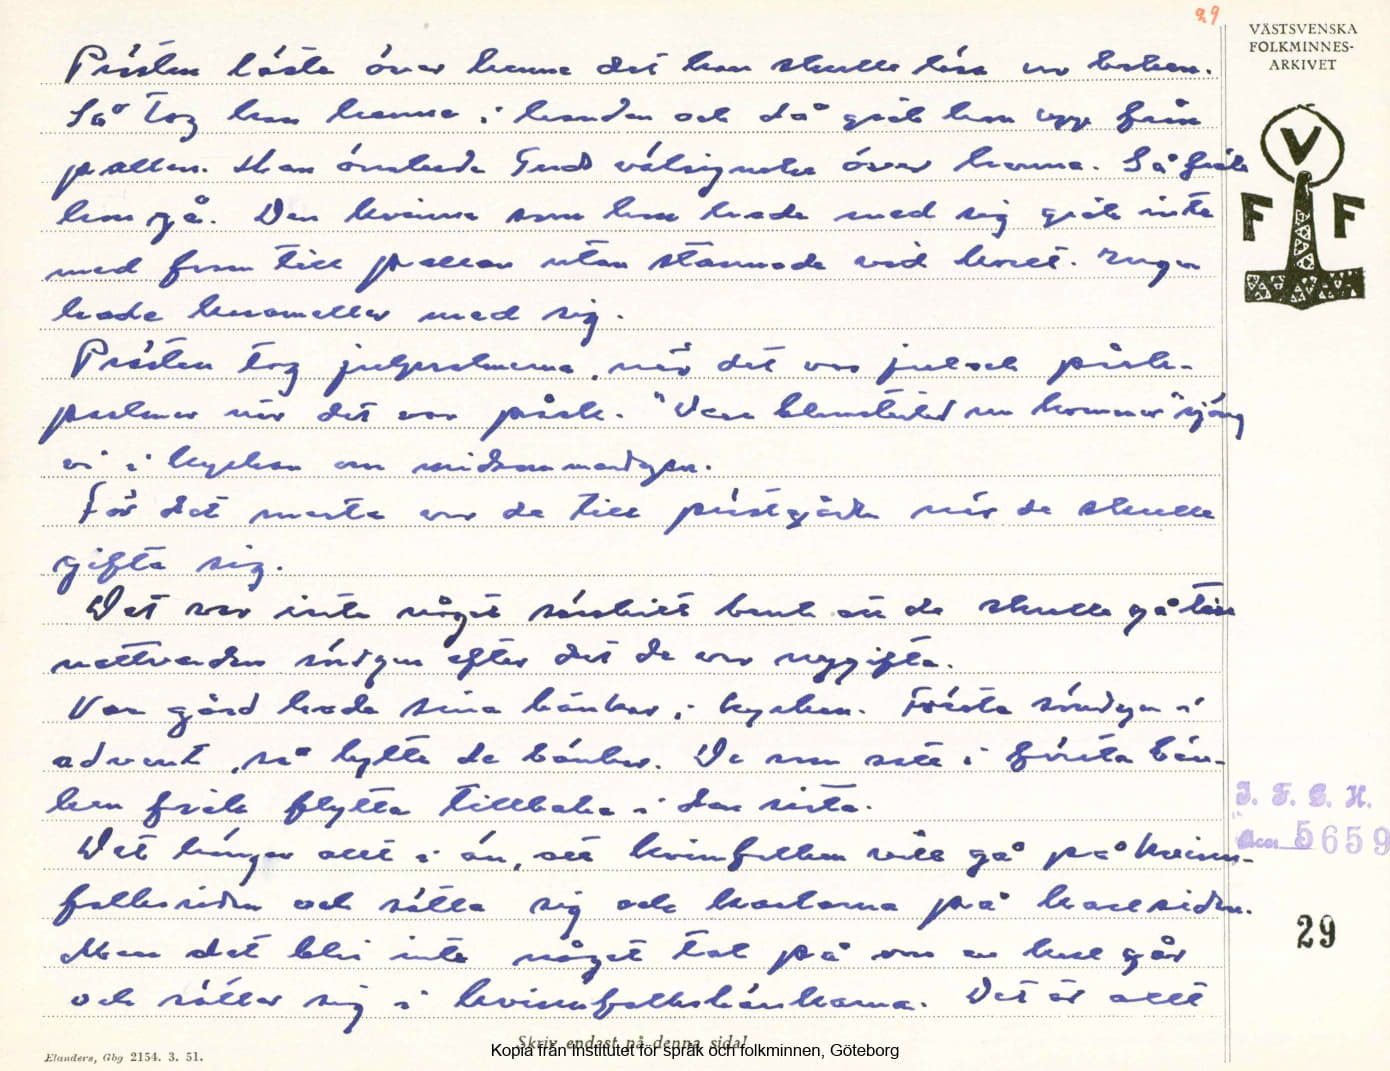 29
VÄSTSVENSKA
FOLKMINNES-
ARKIVET
Prästen läste över henne det han skulle läsa ur boken.
Så tog han henne i handen och då gick hon upp från
pallen. Han önskade Guds välsignelse över henne. Så fick
hon gå. Den kvinna som hon hade med sig gick inte
med fram till pallen utan stannade vid koret. Ingen
hade karameller med sig.
Prästen tog julpsalmerna, när det var jul och påsk-
psalmer när det var påsk. "Den blomstertid nu kommer" sjöng
vi i kyrkan om midsommardagen.
För det mesta var de till prästgården när de skulle
gifta sig.
Det var inte något särskilt bruk att de skulle gå till
nattvarden söndagen efter det de var nygifta.
Var gård hade sina bänkar i kyrkan. Första söndagen i
advent, så bytte de bänkar. De som satt i första bän-
ken fick flytta tillbaka i den sista.
Det hänger allt i än, att kvinnfolken vill gå på kvinn-
folksidan och sätta sig och karlarna på karlsidan.
Men det bli inte något tal på om en karl går
och sätter sig i kvinnfolksbänkarna. Det är allt
V
F F
I. F. G. H.
Acc. 5659
29
Skriv endast på denna sida!
Elanders, Gbg 2154. 3. 51.
Kopia från Institutet för språk och folkminnen, Göteborg